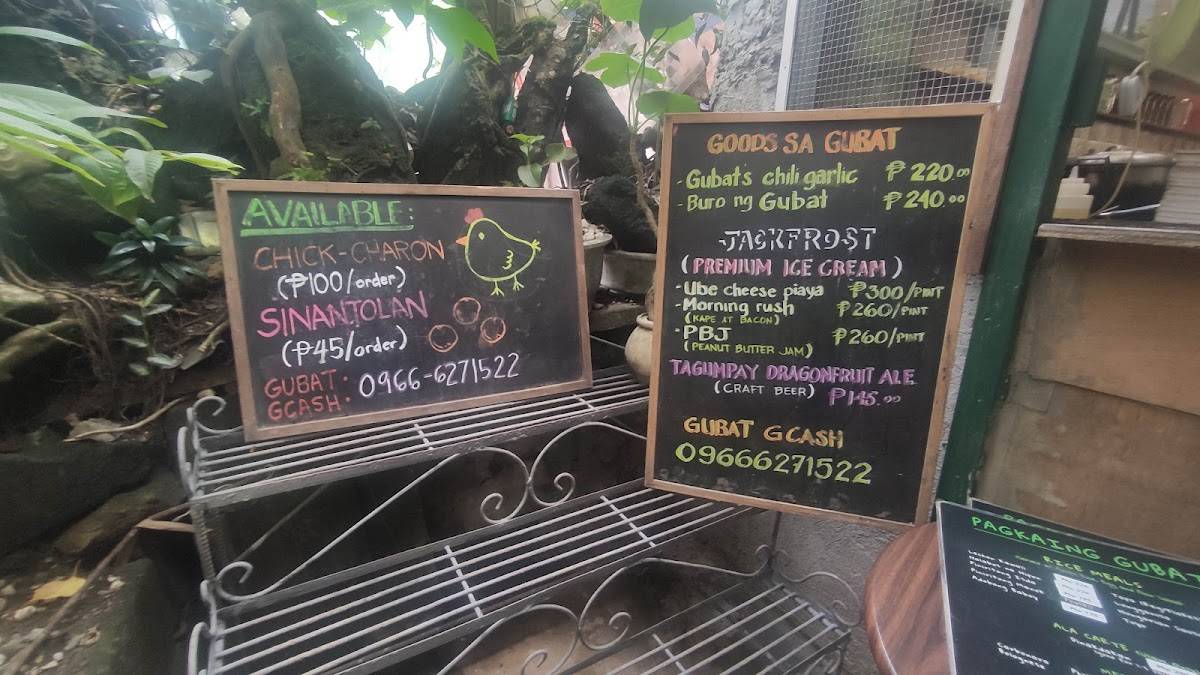 AVAILABLE:
CHICK-CHARON
(₱100/order)
SINANTOLAN
(₱45/order)
GUBAT: 0966-6271522
GCASH:
GOODS SA GUBAT
-Gubat's chili garlic ₱220.00
-Buro ng Gubat ₱240.00
-JASKFROST
(PREMIUM ICE CREAM)
-Ube cheese piaya ₱300/PINT
-Morning rush ₱260/PINT
(KAPE AT BACON)
-PBJ ₱260/PINT
(PEANUT BUTTER JAM)
TAGUMPAY DRAGONFRUIT ALE
(CRAFT BEER) ₱145.00
GUBAT GCASH
09666271522
PAGKAING GUBAT
RICE MEALS
Adobong Baboy
ALA CARTE